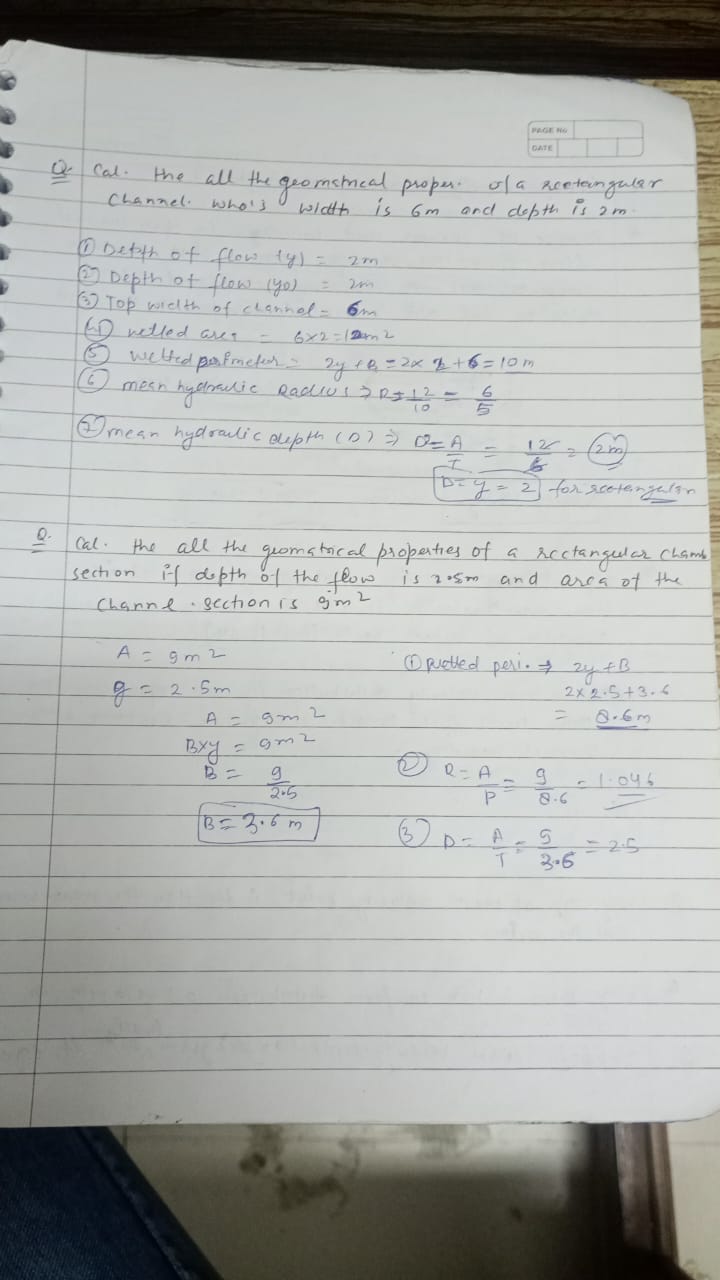 PAGE NO
DATE
Q. Cal. the all the geomstrical proper. of a rectangular
Channel. who's width is 6m and depth is 2m.
① Depth of flow (y) = 2m
② Depth of flow (yo) = 2m
③ Top width of channel = 6m
④ wetted area = 6x2=12m2
⑤ wetted perimeter = 2y+B = 2x2+6=10m
⑥ mean hydraulic Radius ⇒ R = 12/10 = 6/5
⑦ mean hydraulic depth (D) ⇒ D = A/T = 12/6 = 2m
D=y=2 for rectangular
Q. Cal. the all the geomatrical properties of a rectangular
section if depth of the flow is 2.5m and area of the
Channe. section is 9m2
A = 9m2
y = 2.5m
A = 9m2
Bxy = 9m2
B = 9/2.5
B = 3.6 m
① wetted peri. ⇒ 2y+B
2x2.5+3.6
= 8.6m
② R = A/P = 9/8.6 = 1.046
③ D = A/T = 9/3.6 = 2.5